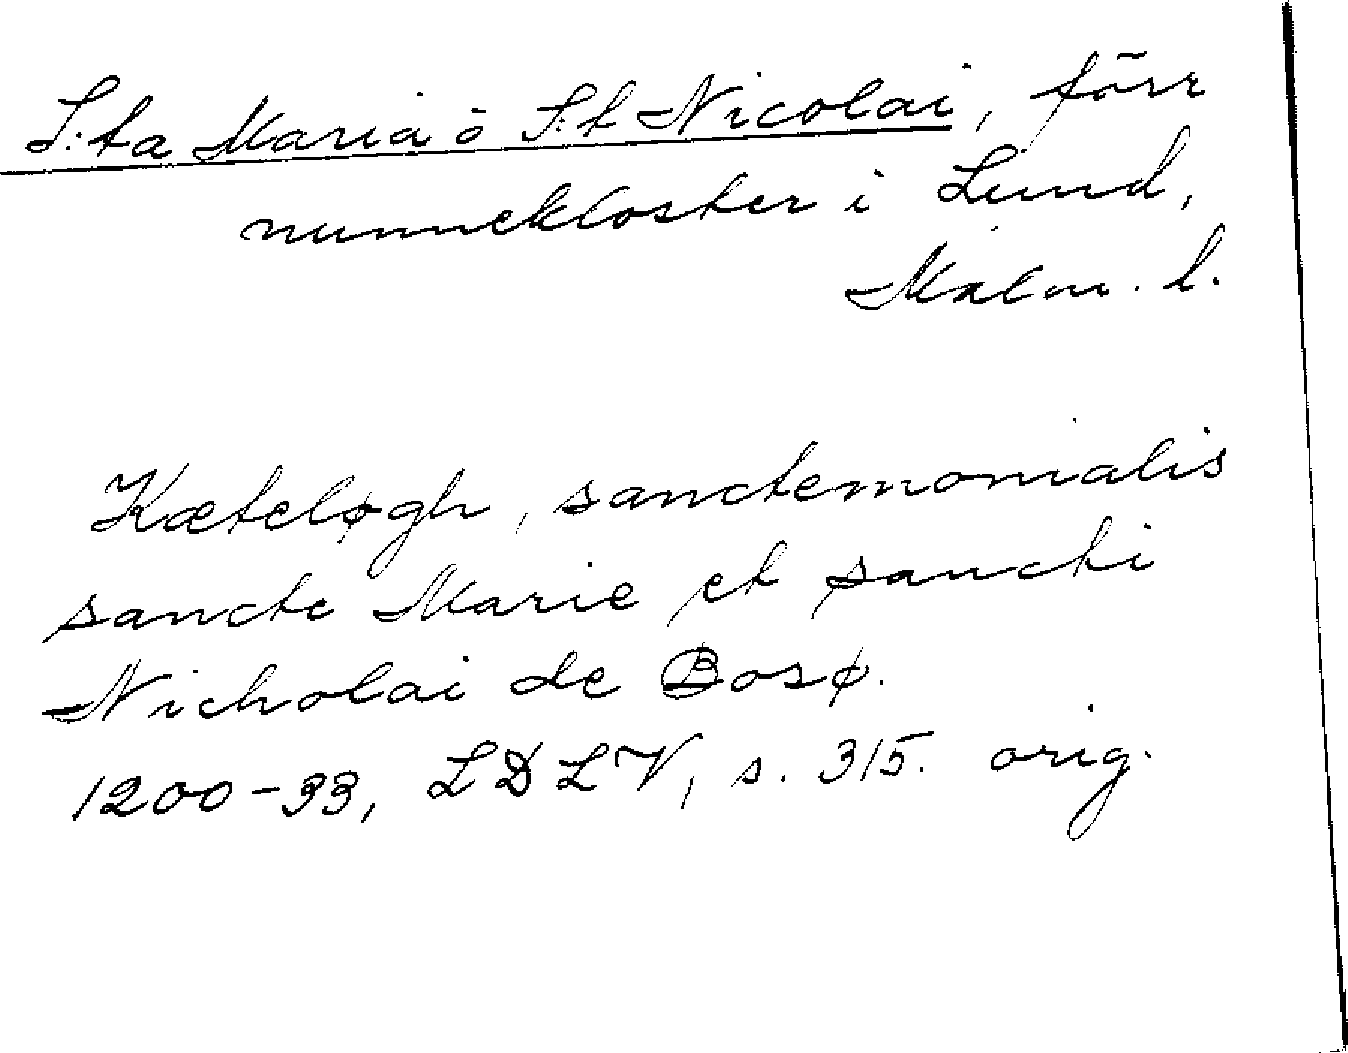 S:ta Maria o S:t Nicolai, förr
nunnekloster i Lund,
Malm. l.
Kæteløgh, sanctemonialis
sancte Marie et sancti
Nicholai de Bosø.
1200-33, LDLV, s. 315. orig.